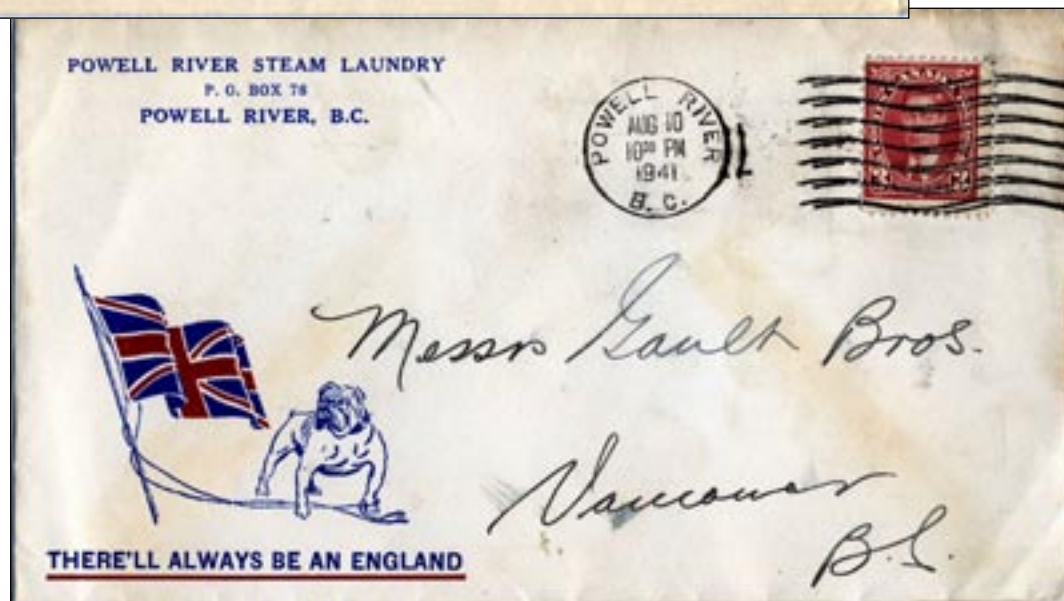 POWELL RIVER STEAM LAUNDRY
P. O. BOX 76
POWELL RIVER, B.C.
POWELL RIVER
AUG 10
10³⁰ PM
1941
B.C.
CANADA
3 3
Messrs Gault Bros.
Vancouver
B.C.
THERE'LL ALWAYS BE AN ENGLAND